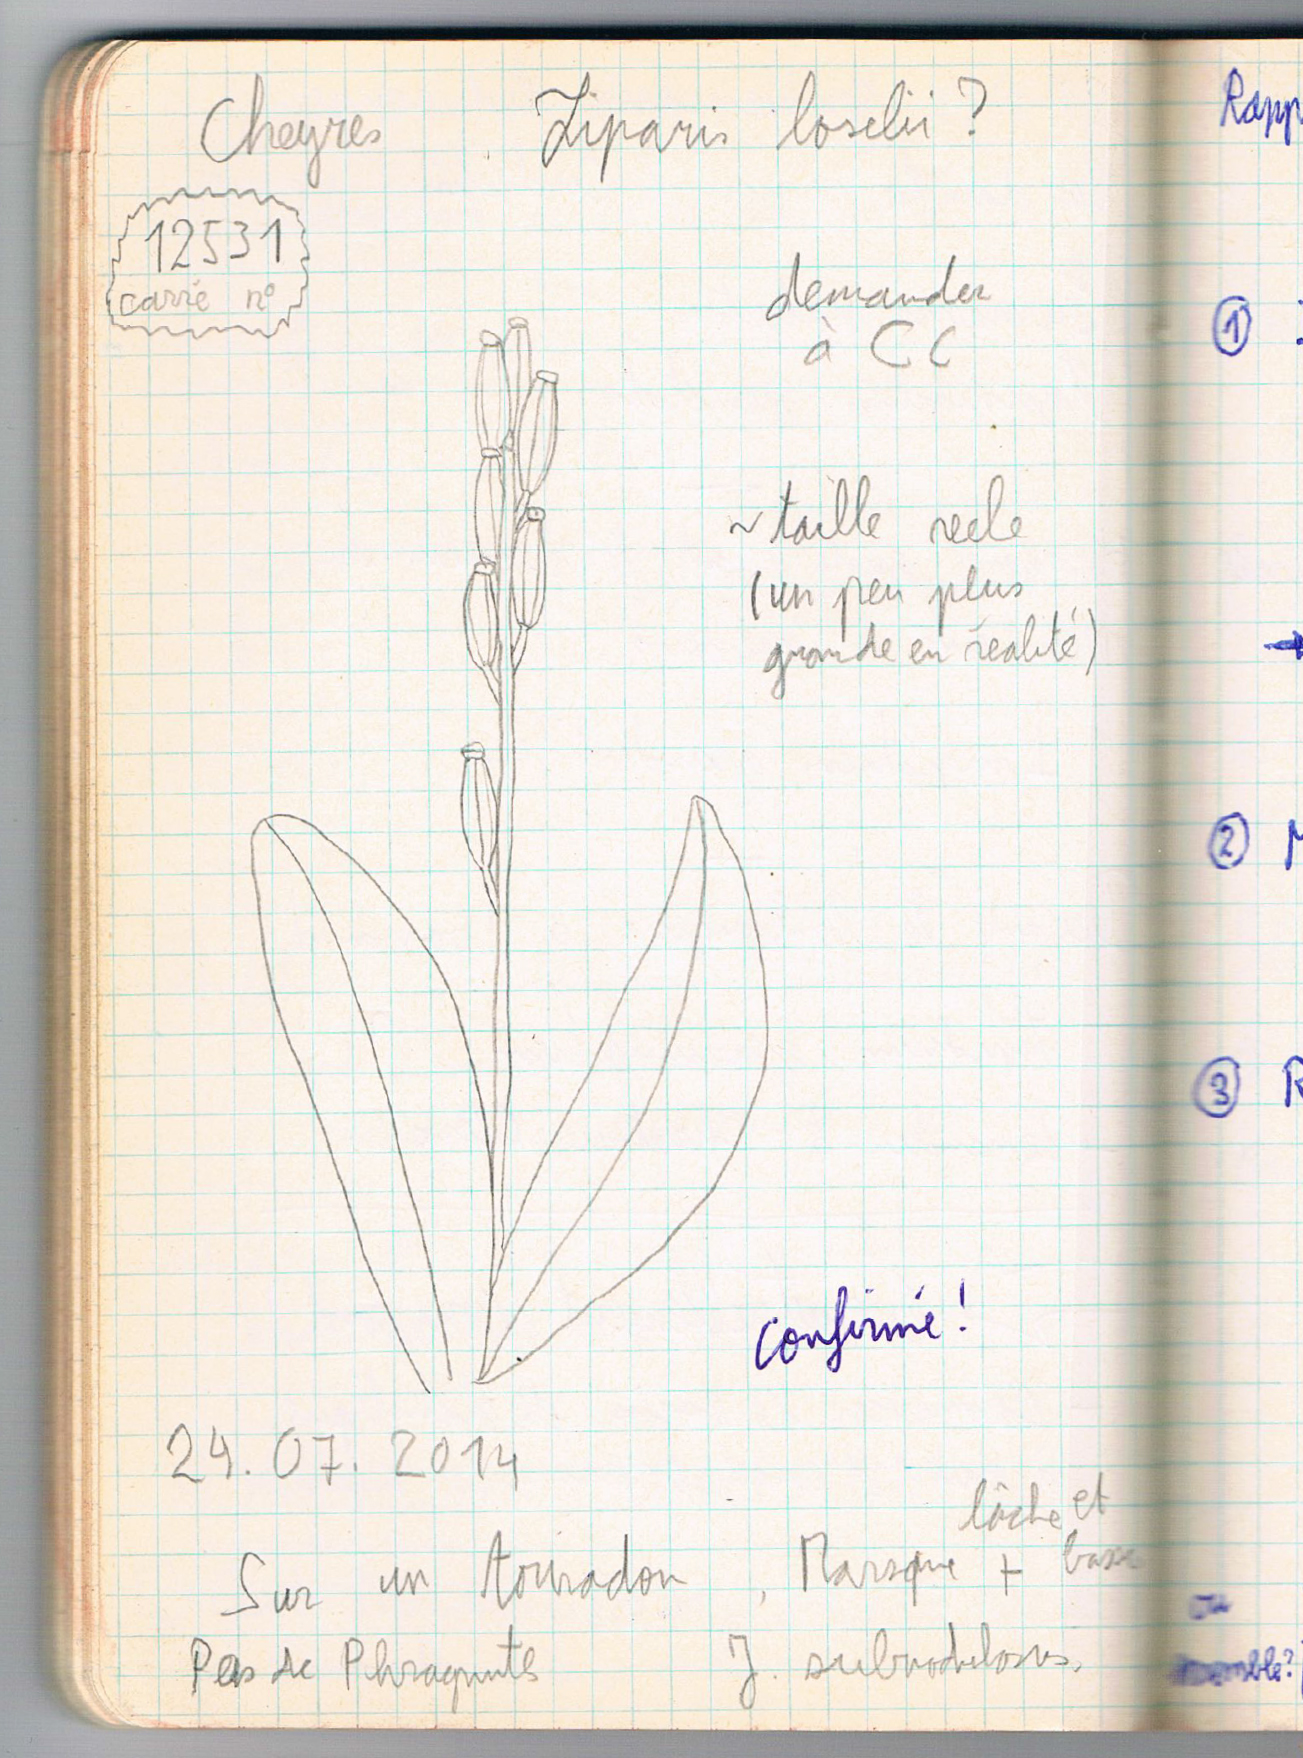 Cheyres Liparis loselii ?
12531
carré n°
demander
à CC
~ taille reele
(un peu plus
grande en réalité)
confirmé !
24.07.2014
lâche et
Sur un touradon, Marsque + basse
Pas de Phragmites J. subnodulosus.
Rapp
①
→
②
③ R
ou